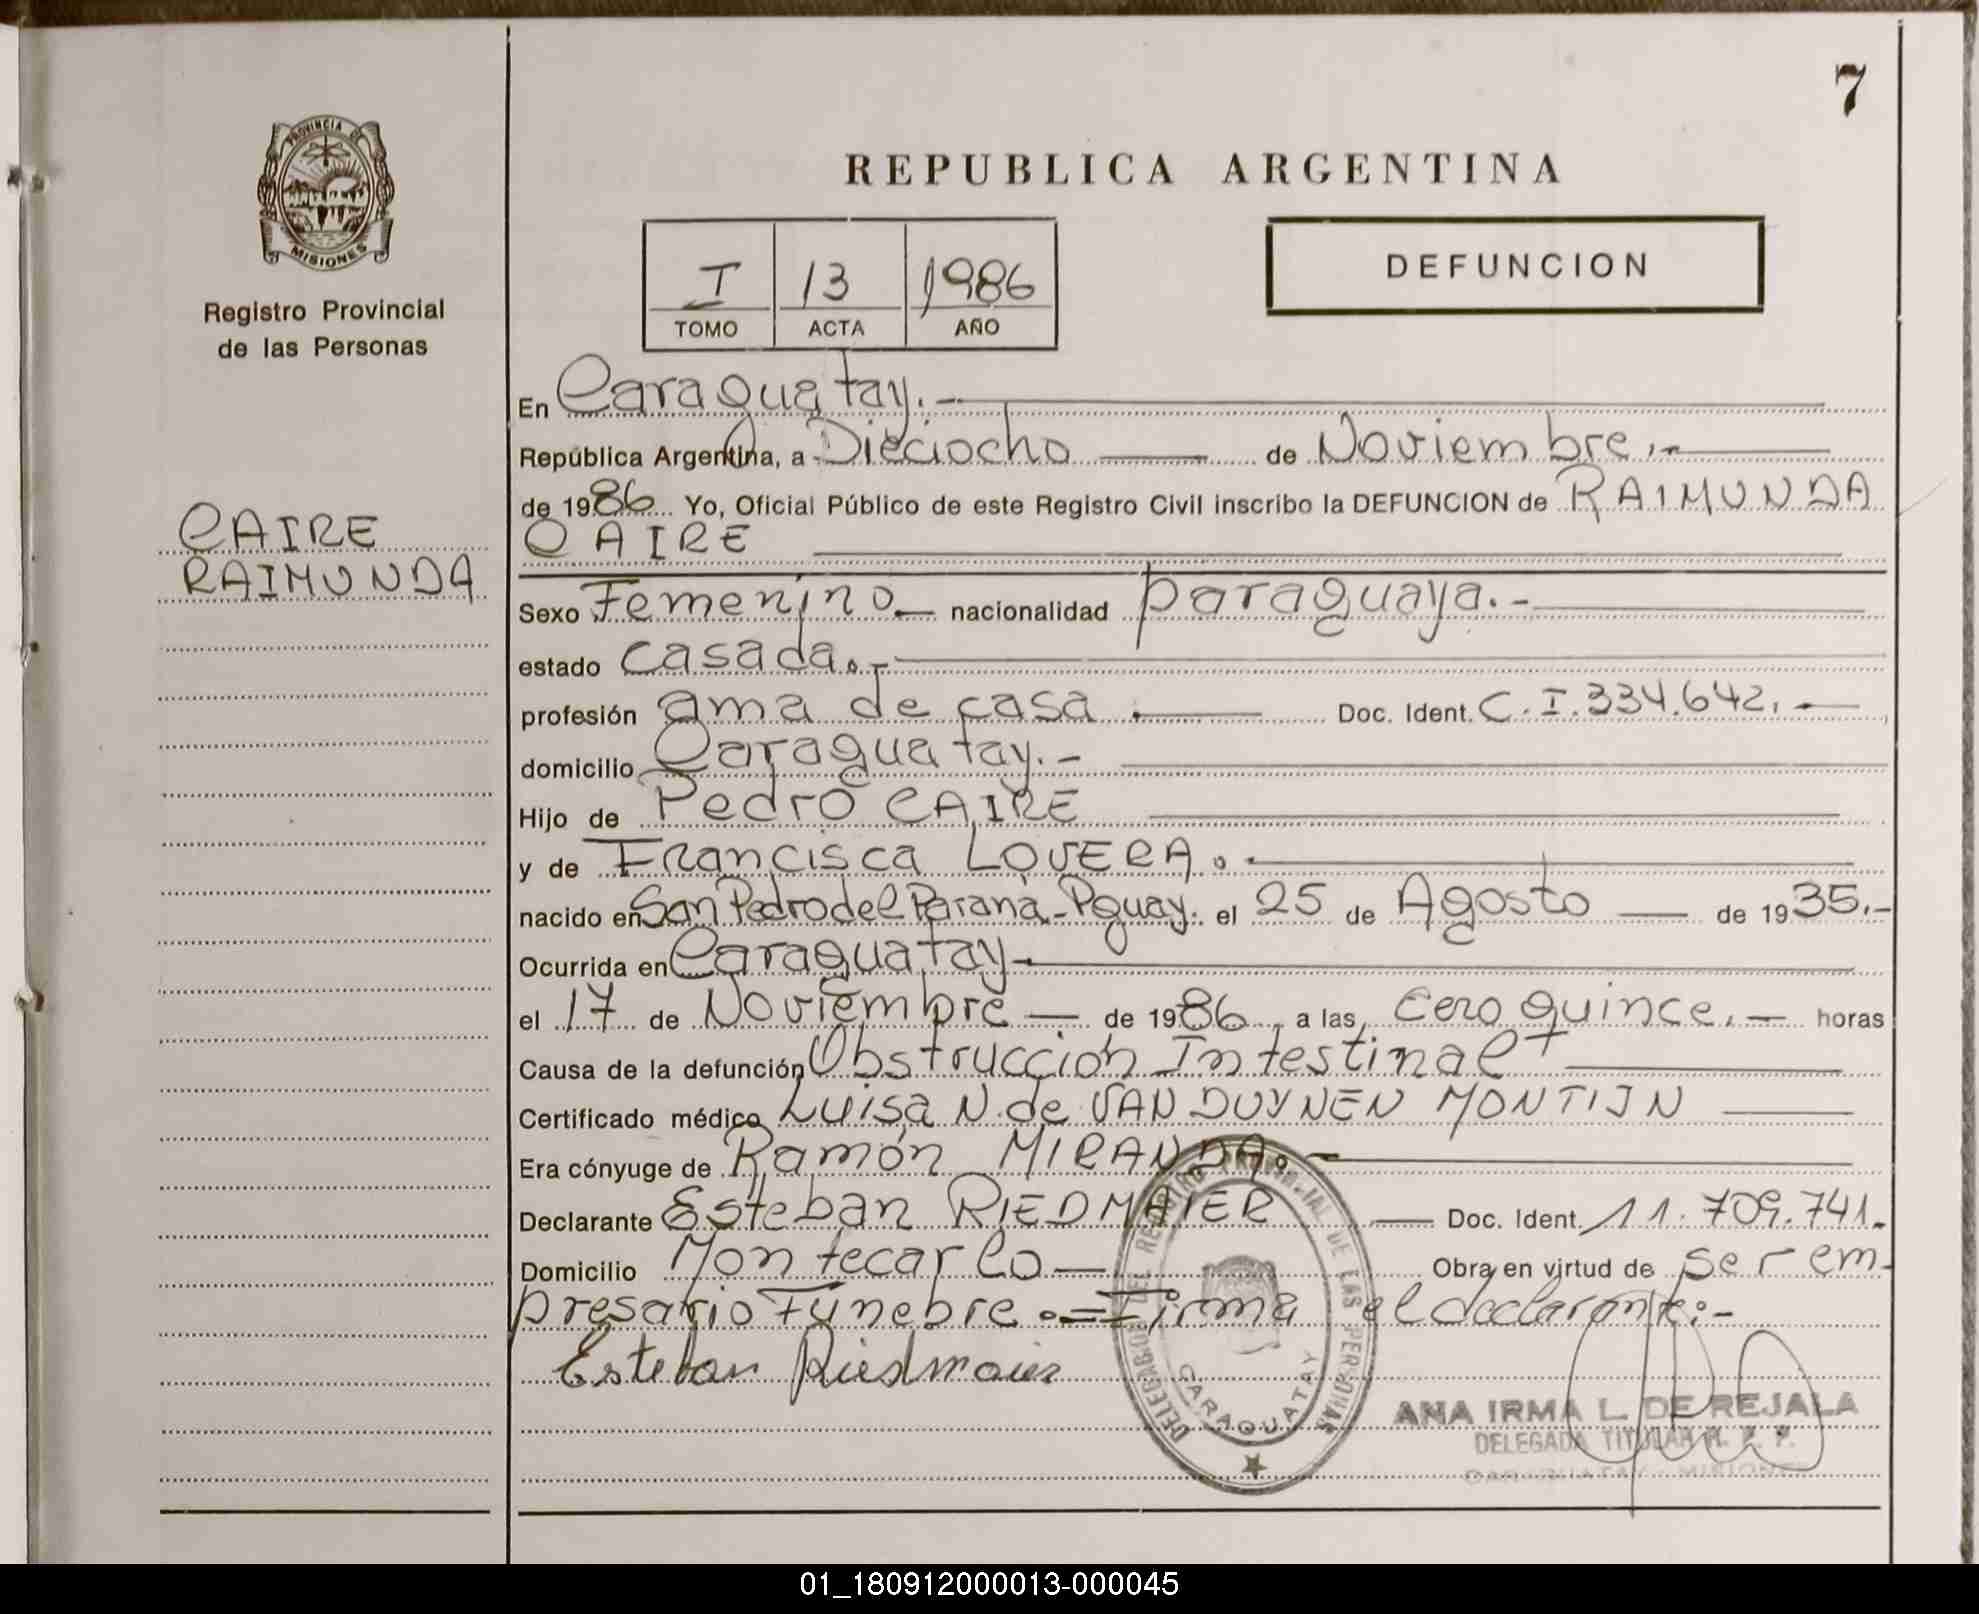 7
PROVINCIA DE
MISIONES
Registro Provincial
de las Personas
CAIRE
RAIMUNDA
REPUBLICA ARGENTINA
I 13 1986
TOMO ACTA AÑO
DEFUNCION
En Caraguatay.-
República Argentina, a Dieciocho de Noviembre.-
de 1986 Yo, Oficial Público de este Registro Civil inscribo la DEFUNCION de RAIMUNDA
CAIRE
Sexo Femenino nacionalidad paraguaya.-
estado casada.-
profesión ama de casa.- Doc. Ident. C.I.334.642.-
domicilio Caraguatay.-
Hijo de Pedro CAIRE
y de Francisca LOVERA.-
nacido en San Pedro del Paraná-Pguay. el 25 de Agosto de 1935.-
Ocurrida en Caraguatay-
el 17 de Noviembre de 1986 a las Cero quince.- horas
Causa de la defunción Obstrucción Intestinal
Certificado médico Luisa N. de VAN DUYNEN MONTIJN
Era cónyuge de Ramón MIRANDA.-
Declarante Esteban RIEDMAIER Doc. Ident. 11.709.741.-
Domicilio Montecarlo Obra en virtud de ser em-
presario Fúnebre.=Firma el declarante:-
Esteban Riedmaier
DELEGACION DEL REGISTRO PROVINCIAL DE LAS PERSONAS
CARAGUATAY
ANA IRMA L. DE REJALA
DELEGADA TITULAR R. P. P.
CARAGUATAY - MISIONES
01_180912000013-000045